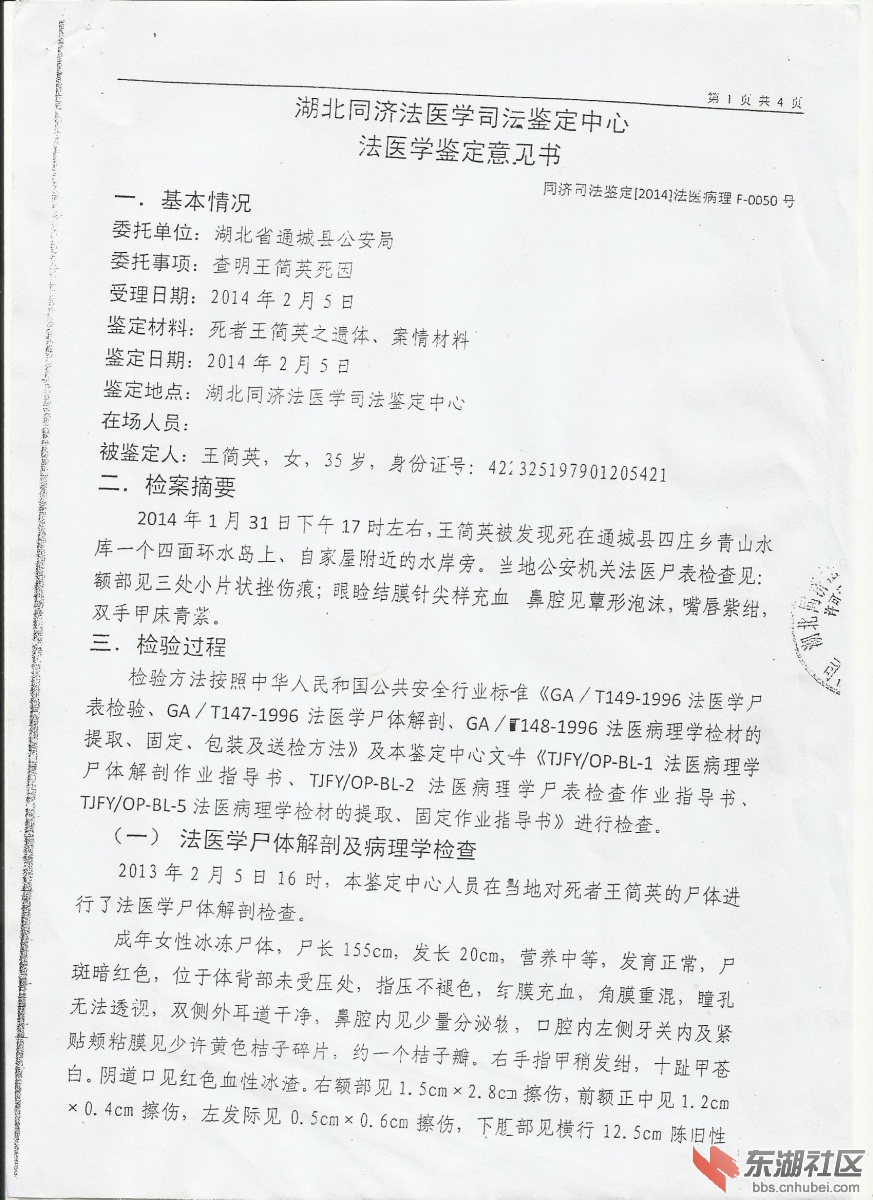 第 1 页 共 4 页
湖北同济法医学司法鉴定中心
法医学鉴定意见书
同济司法鉴定[2014]法医病理 F-0050 号
一．基本情况
委托单位：湖北省通城县公安局
委托事项：查明王简英死因
受理日期：2014 年 2 月 5 日
鉴定材料：死者王简英之遗体、案情材料
鉴定日期：2014 年 2 月 5 日
鉴定地点：湖北同济法医学司法鉴定中心
在场人员：
被鉴定人：王简英，女，35 岁，身份证号：422325197901205421
二．检案摘要
2014 年 1 月 31 日下午 17 时左右，王简英被发现死在通城县四庄乡青山水
库一个四面环水岛上、自家屋附近的水岸旁。当地公安机关法医尸表检查见：
额部见三处小片状挫伤痕；眼睑结膜针尖样充血 鼻腔见蕈形泡沫，嘴唇紫绀，
双手甲床青紫。
三．检验过程
检验方法按照中华人民和国公共安全行业标准《GA／T149-1996 法医学尸
表检验、GA／T147-1996 法医学尸体解剖、GA／T148-1996 法医病理学检材的
提取、固定、包装及送检方法》及本鉴定中心文件《TJFY/OP-BL-1 法医病理学
尸体解剖作业指导书、TJFY/OP-BL-2 法医病理学尸表检查作业指导书、
TJFY/OP-BL-5 法医病理学检材的提取、固定作业指导书》进行检查。
（一） 法医学尸体解剖及病理学检查
2013 年 2 月 5 日 16 时，本鉴定中心人员在当地对死者王简英的尸体进
行了法医学尸体解剖检查。
成年女性冰冻尸体，尸长 155cm，发长 20cm，营养中等，发育正常，尸
斑暗红色，位于体背部未受压处，指压不褪色，结膜充血，角膜重混，瞳孔
无法透视，双侧外耳道干净，鼻腔内见少量分泌物，口腔内左侧牙关内及紧
贴颊粘膜见少许黄色桔子碎片，约一个桔子瓣。右手指甲稍发绀，十趾甲苍
白。阴道口见红色血性冰渣。右额部见 1.5cm×2.8cm 擦伤，前额正中见 1.2cm
×0.4cm 擦伤，左发际见 0.5cm×0.6cm 擦伤，下腹部见横行 12.5cm 陈旧性
湖北同济
许可
司
东湖社区
bbs.cnhubei.com